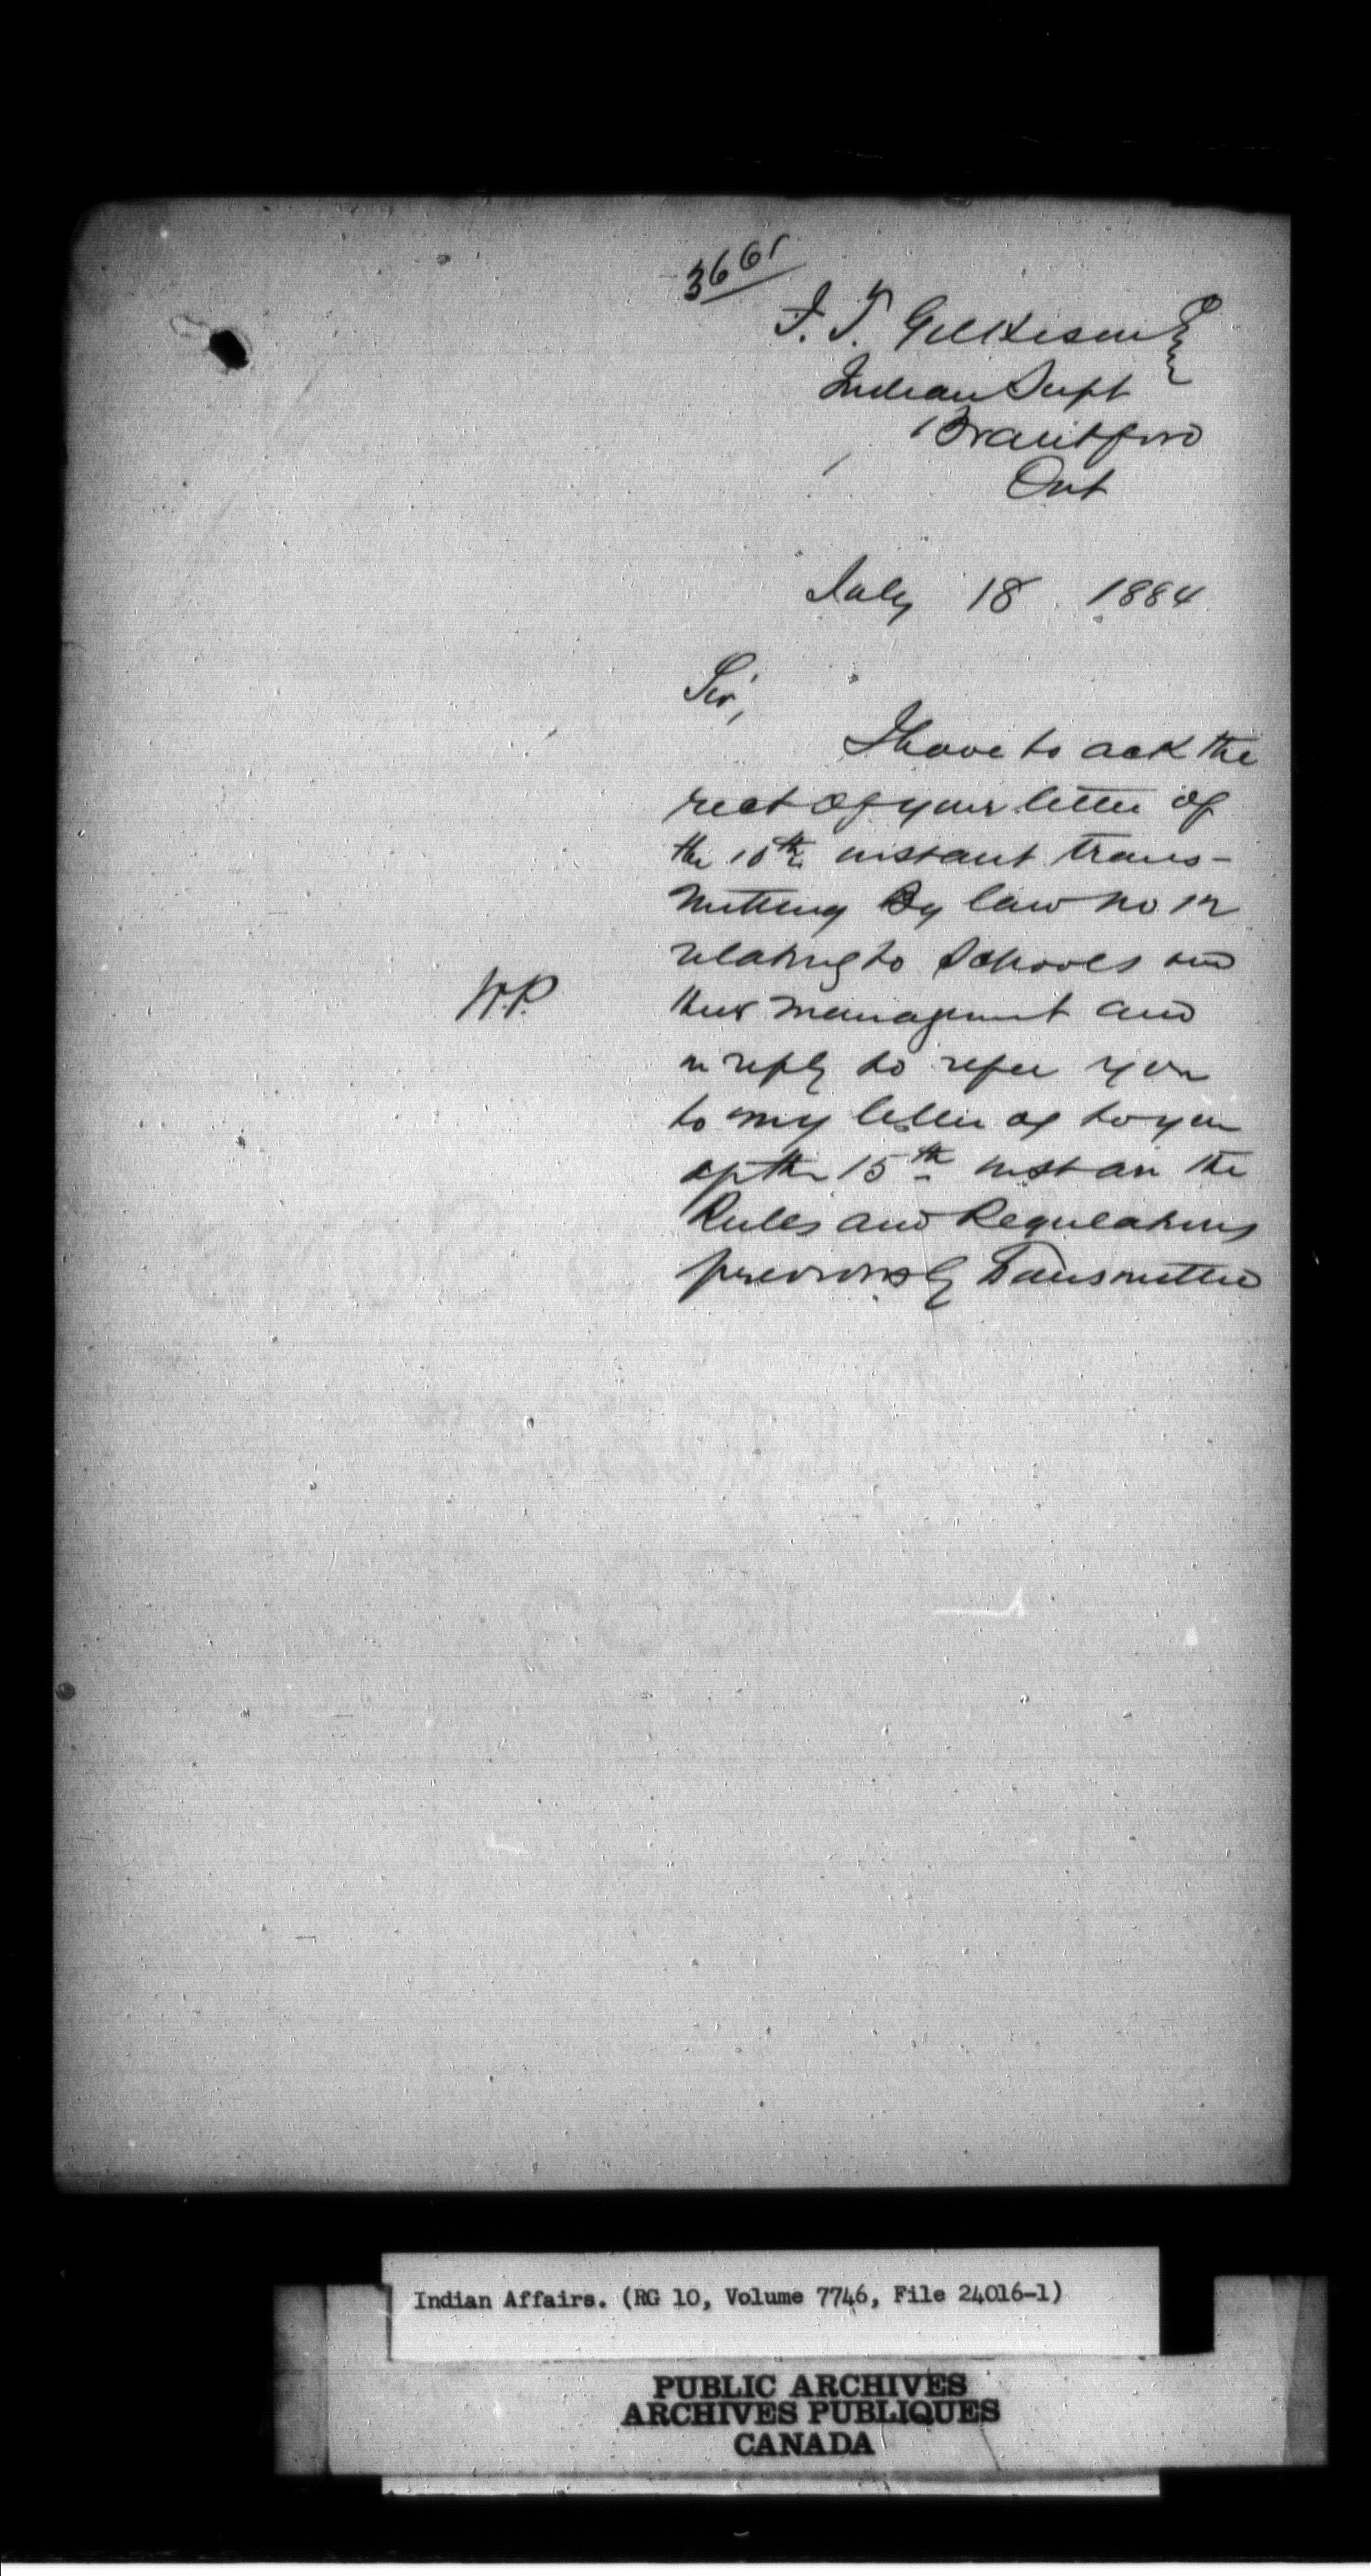 3661
J. T. Gilkison Esq
Indian Supt
Brantford
Ont
July 18 1884
Sir,
I have to ack the
rect of your letter of
the 10th instant trans-
mitting By law no 12
relating to Schools and
their management and
in reply to refer you
to my letter of to you
of the 15th inst on the
Rules and Regulations
previously Transmitted
Indian Affairs. (RG 10, Volume 7746, File 24016-1)
PUBLIC ARCHIVES
ARCHIVES PUBLIQUES
CANADA